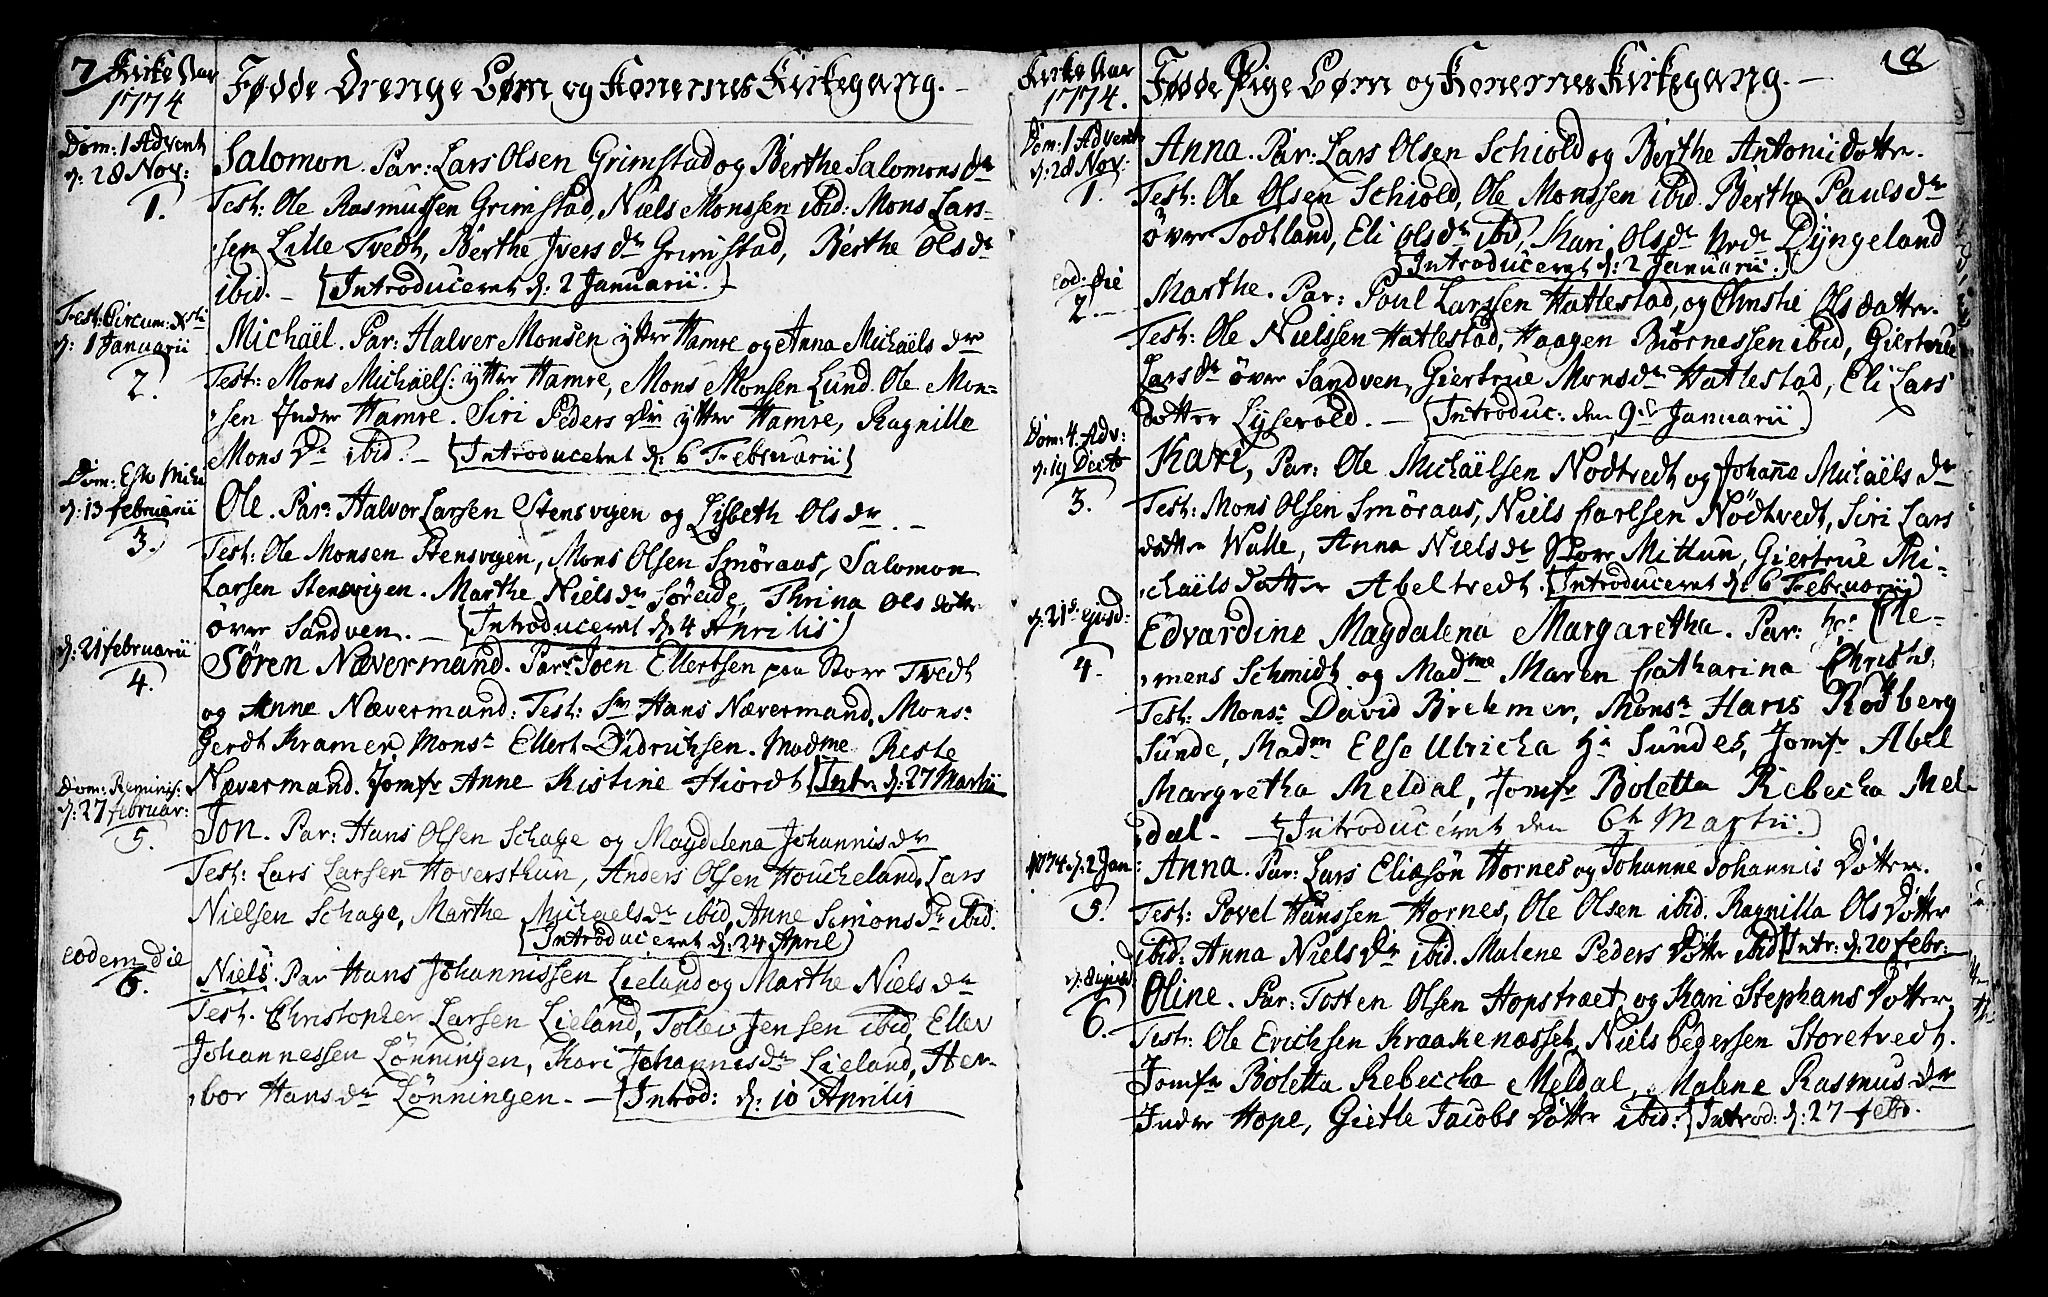 7
Kirke Aar
1774
Fødde Drenge Børn og Konernes Kirkegang. -
Dom: 1 Advent
d: 28 Nov:
1.
Salomon. Par: Lars Olsen Grimstad og Berthe Salomons dr
Test: Ole Rasmussen Grimstad, Niels Monssen ibid: Mons Lars-
sen Lille Tvedt, Berthe Ivers dr Grimstad, Berthe Ols dr
ibid. - Introduceret d: 2 Januarii.
Fest: Circum: Xsti
d: 1 Januarii
2.
Michaël. Par: Halver Monsen ytter Hamre og Anna Michaëls dr
Test: Mons Michaëls: ytter Hamre, Mons Monsen Lund. Ole Mon-
sen Inder Hamre. Siri Peders dr ytter Hamre, Ragnille
Mons dr ibid. - Introduceret d: 6 Februarii
Dom: Esto Mihi
d: 13 februarii
3.
Ole. Par: Halvor Larsen Stensvigen og Lisbeth Ols dr. -
Test: Ole Monsen Stensvigen, Mons Olsen Smøraas, Salomon
Larsen Stensvigen. Marthe Niels dr Søreide, Thrina Ols datter
över Sandven. - Introduceret d: 4 Aprilis
d: 21 februarii
4.
Søren Nævermand. Par: Joen Ellertsen paa Store Tvedt
og Anne Nævermand: Test: Sr Hans Nævermand, Monsr
Gerdt Kramer, Monsr Ellert Didrichsen. Madme Reste
Nævermand. Jomfr Anne Kistine Hiordt Intr d: 27 Martii
Dom: Reminis:
d: 27 februar:
5.
Jon. Par: Hans Olsen Schage og Magdelena Johannis dr
Test: Lars Larsen Hoversthun, Anders Olsen Houcheland, Lars
Nielsen Schage, Marthe Michaels dr ibid, Anne Simons dr ibid.
Introduceret d: 24 April
eodem Die
6.
Niels. Par Hans Johannissen Lieland og Marthe Niels dr
Test. Christopher Larsen Lieland, Tollev Jensen ibid, Ellev
Johannessen Lønningen, Kari Johannis dr Lieland, Her-
bor Hans dr Lønningen. - Introd: d: 10 Aprilis
8
Kirke Aar
1774.
Fødde Pige Børn og Konernes Kirkegang. -
Dom: 1 Advent
d: 28 Nov:
1.
Anna. Par: Lars Olsen Schiold og Berthe Antonii dotter.
Test: Ole Olsen Schiold, Ole Monssen ibid. Berthe Pauls dr
över Todtland, Eli Ols dr ibid, Kari Ols dr Nedr Dyngeland
Introduceret d: 2 Januarii.
eod: die
2. -
Marthe. Par: Poul Larssen Hatlestad, og Christie Ols datter.
Test: Ole Nielssen Hatlestad, Haagen Biørnessen ibid, Giertrue
Lars dr över Sandven, Giertrue Mons dr Hatlestad, Eli Lars
dotter Lysevold. - Introduc: den 9de Januarii
Dom: 4. Adv:
d: 19 Decb
3.
Kari, Par: Ole Michaëlsen Nodtvedt og Johanne Michaëls dr
Test: Mons Olsen Smøraas, Niels Carlsen Nödtvedt, Siri Lars
datter Walle, Anna Niels dr Store Mittun, Giertrue Mi-
chaëls datter Abeltvedt. Introduceret d: 6 Februarii
d: 21de ejusd:
4.
Edvardine Magdalena Margaretha. Par: Hr Cle-
mens Schmidt og Madme Maren Catharina Christi,
Test: Monsr David Brehmer, Monsr Hans Rodberg
Sunde, Madm Else Ulricha Hr Sundes, Jomfr Abel
Margretha Meldal, Jomfr Boletta Rebecha Mel-
dal. - Introduceret den 6te Martii.
1774 d: 2 Jan:
5.
Anna. Par: Lars Eliasøn Hornes og Johanne Johannis Dotter.
Test: Povel Hanssen Hornes, Ole Olsen ibid. Ragnilla Ols Dotter
ibid: Anna Niels dr ibid. Malene Peders Dotter ibid Intr: d: 20 febr:
6.
Oline. Par: Tosten Olsen Hopstræt og Kari Stephans Dotter.
Test: Ole Erichsen Kraakenæsset, Niels Pedersen Storetvedt.
Jomfr Boletta Rebeccha Meldal, Malene Rasmus dr
Inder Hope, Gietle Jacobs Dotter ibid: Introd: d: 27 febr.